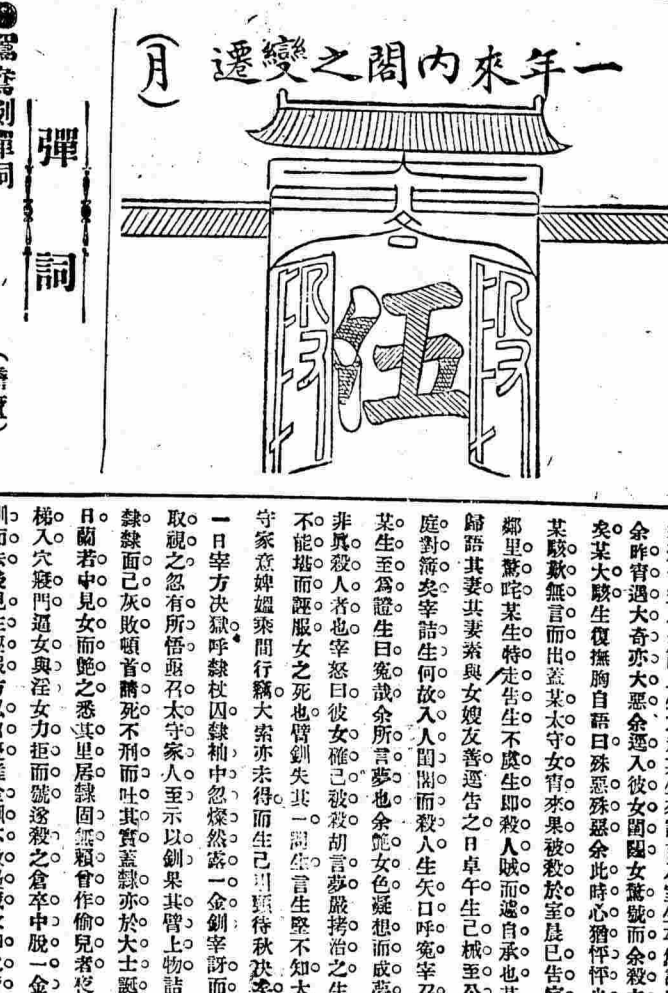 一年來內閣之變遷
(月)
段
段
余昨宵遇大奇亦大惡余逕入彼女閨闥女驚號而余殺
矣。某大駭生復撫胸自語曰殊惡殊惡余此時心猶怦怦
某駭歎無言而出蓋某太守女宵來果被殺於室晨已告
鄰里驚咤某生特走告生不虞生即殺人賊而遽自承也
歸語其妻其妻素與女嫂友善逕告之日卓午生已械至公
庭對簿矣宰詰生何故入人閨閣而殺人生矢口呼冤宰
某生至爲證生曰冤哉余所言夢也余艶女色凝想而成夢
非眞殺人者也宰怒曰彼女確已被殺胡言夢嚴拷治之生
不能堪而誣服女之死也臂釧失其一問生言生堅不知大
守家意婢媼乘間行竊大索亦未得而生已引頸待秋决
一日宰方决獄呼隸杖囚隸袖中忽燦然露一金釧宰訝而
取視之忽有所悟亟召太守家人至示以釧果其臂上物詰
隸隸面已灰敗頓首請死不刑而吐其實蓋隸亦於大士誕
日蘭若中見女而艶之悉其里居隸固無賴曾作偷兒者夜
梯入穴寢門逼女與淫女力拒而號遂殺之倉卒中脫一金
彈詞
鴛鴦劍彈詞